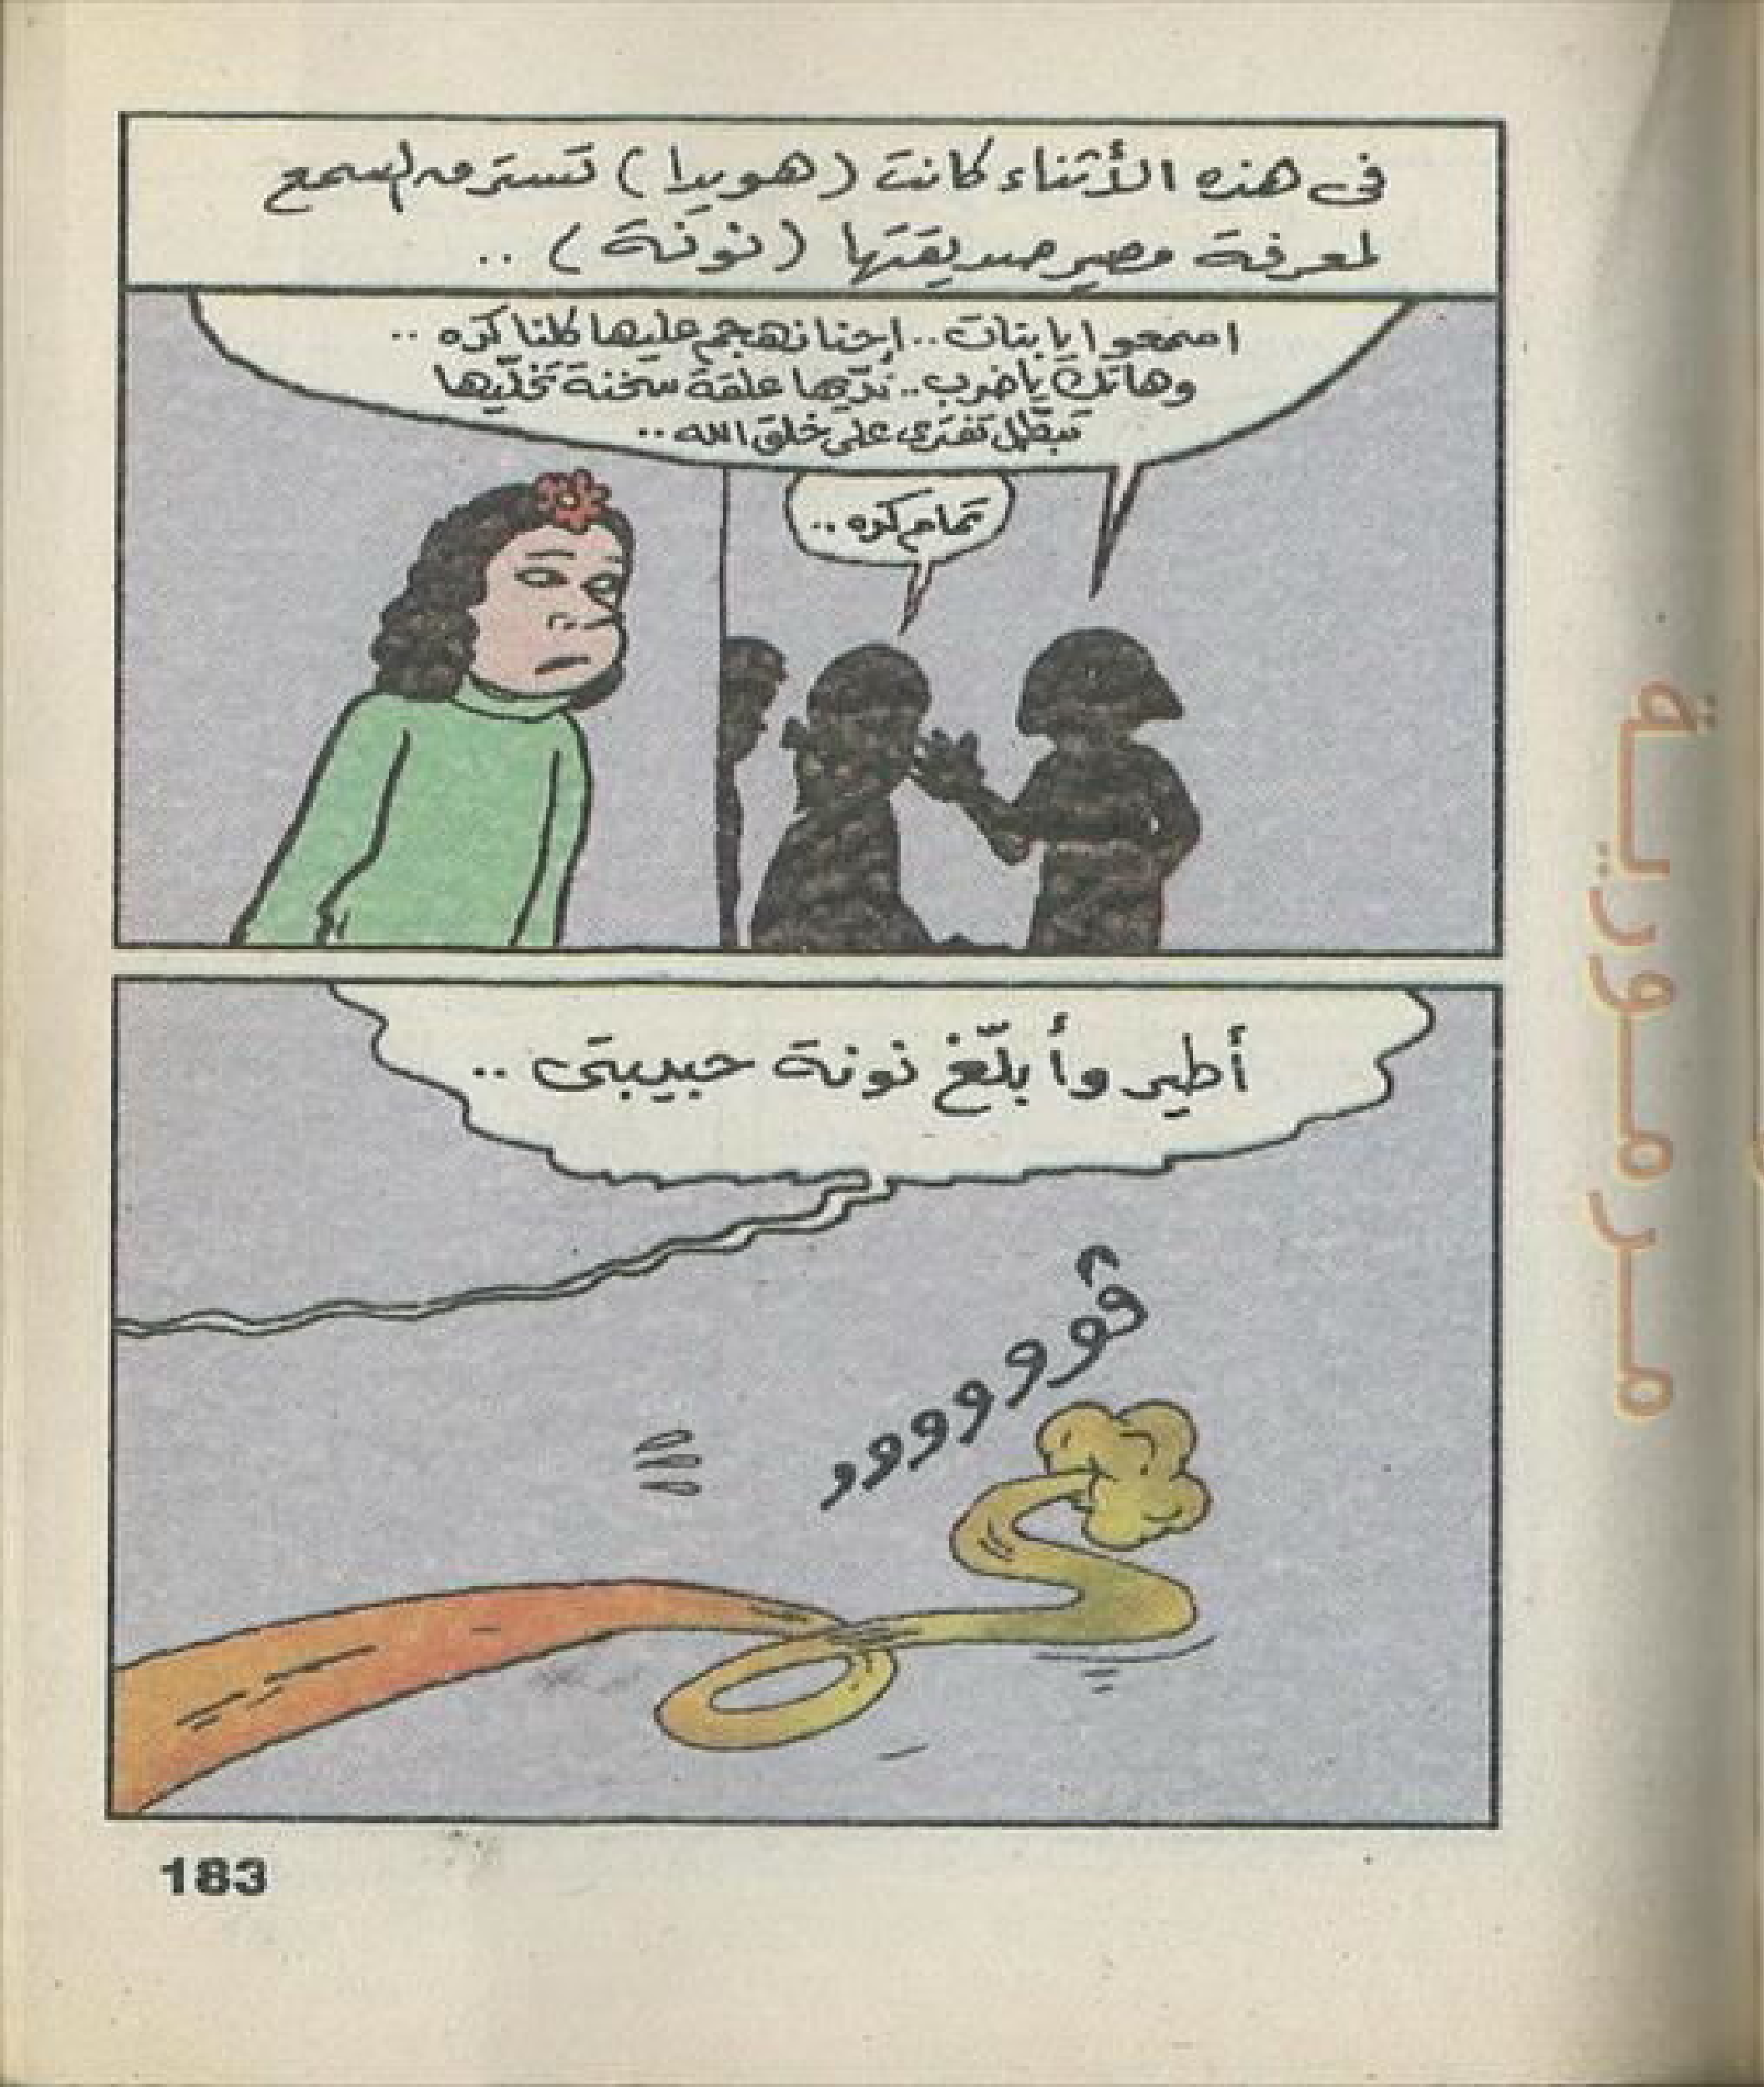 فى هذه الأثناء كانت (هويدا) تسترق السمع
لمعرفة مصير صديقتها (نونة) ..
اسمعوا يا بنات .. إحنا نهجم عليها كلنا كده ..
وهاتك يا ضرب .. نديها علقة سخنة تخلّيها
تبطّل تفترى على خلق الله ..
تمام كده ..
أطير وأبلّغ نونة حبيبتى ..
ڤووووووو
183
مرمورية